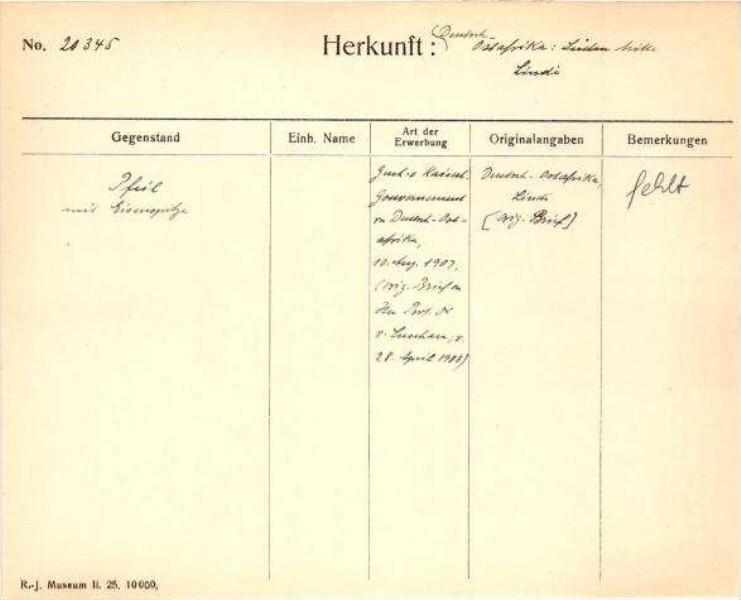 No. 20345
Herkunft: Deutsch-Ostafrika:
Lindi
Gegenstand
Einh. Name
Art der Erwerbung
Originalangaben
Bemerkungen
Pfeil
mit Eisenspitze
Kaiserl.
Gouvernement
v. Deutsch-Ost-
afrika,
10. Aug. 1907,
(Orig. Brief an
Hn Prof. Dr
v. Luschan, v.
28. April 1908)
Deutsch-Ostafrika,
Lindi
[Orig. Brief]
fehlt
R.-J. Museum II. 25. 10000.